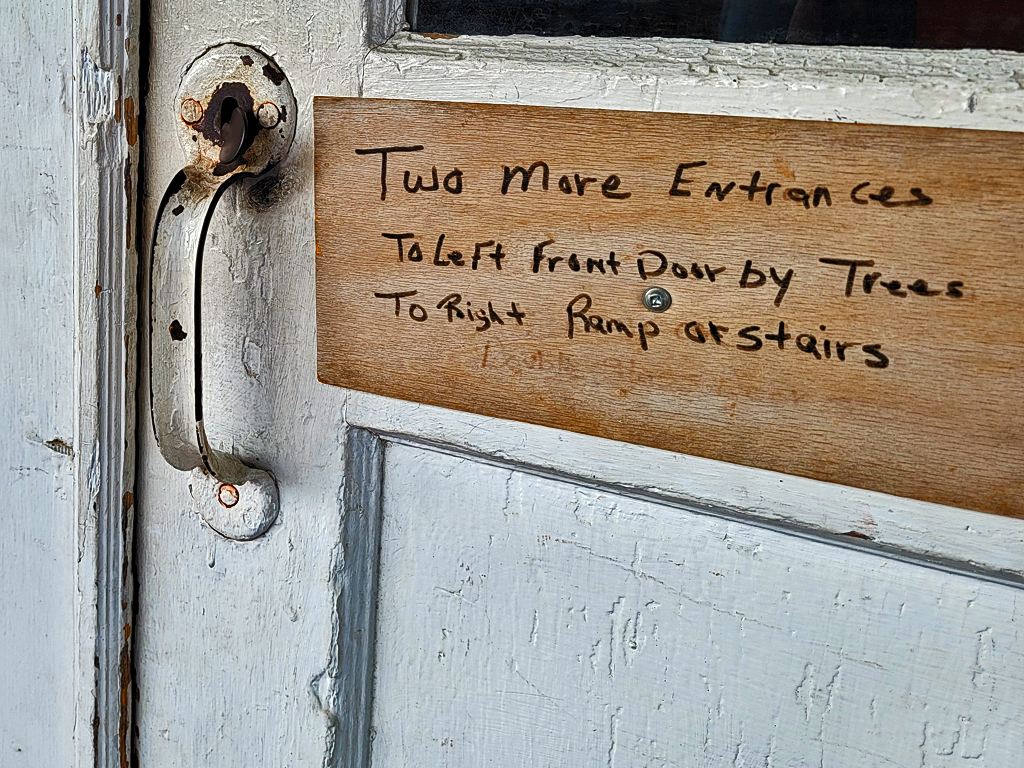 Two More Entrances
To Left Front Door by Trees
To Right Ramp or stairs